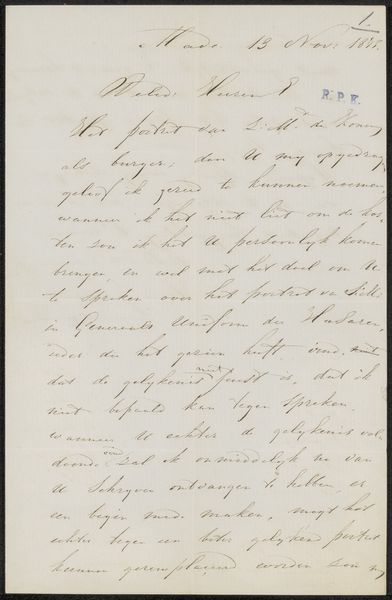 1.
Made 13 Nov: 18
Weled: Heeren
R.P.K.
Het portret van Z: M. de Koning
als burger, door U my opgedragen
geloof ik gereed te kunnen noemen,
wanneer ik het niet liet om de kos-
ten zou ik het U persoonlyk komen
brengen, en wel met het doel om U
te spreken over het portret van
in Generaals Uniform der Husaren,
ieder die het gezien heeft vind
dat de gelykenis niet juist is, dat ik
niet bepaald kan tegen spreken.
wanneer U echter de gelykenis vol-
doende zal ik onmiddelyk na van
U schryven ontvangen te hebben, er
een begin mede maken, mogt het
echter tegen een beter gelykend portret
kunnen geremplaceerd worden zou my